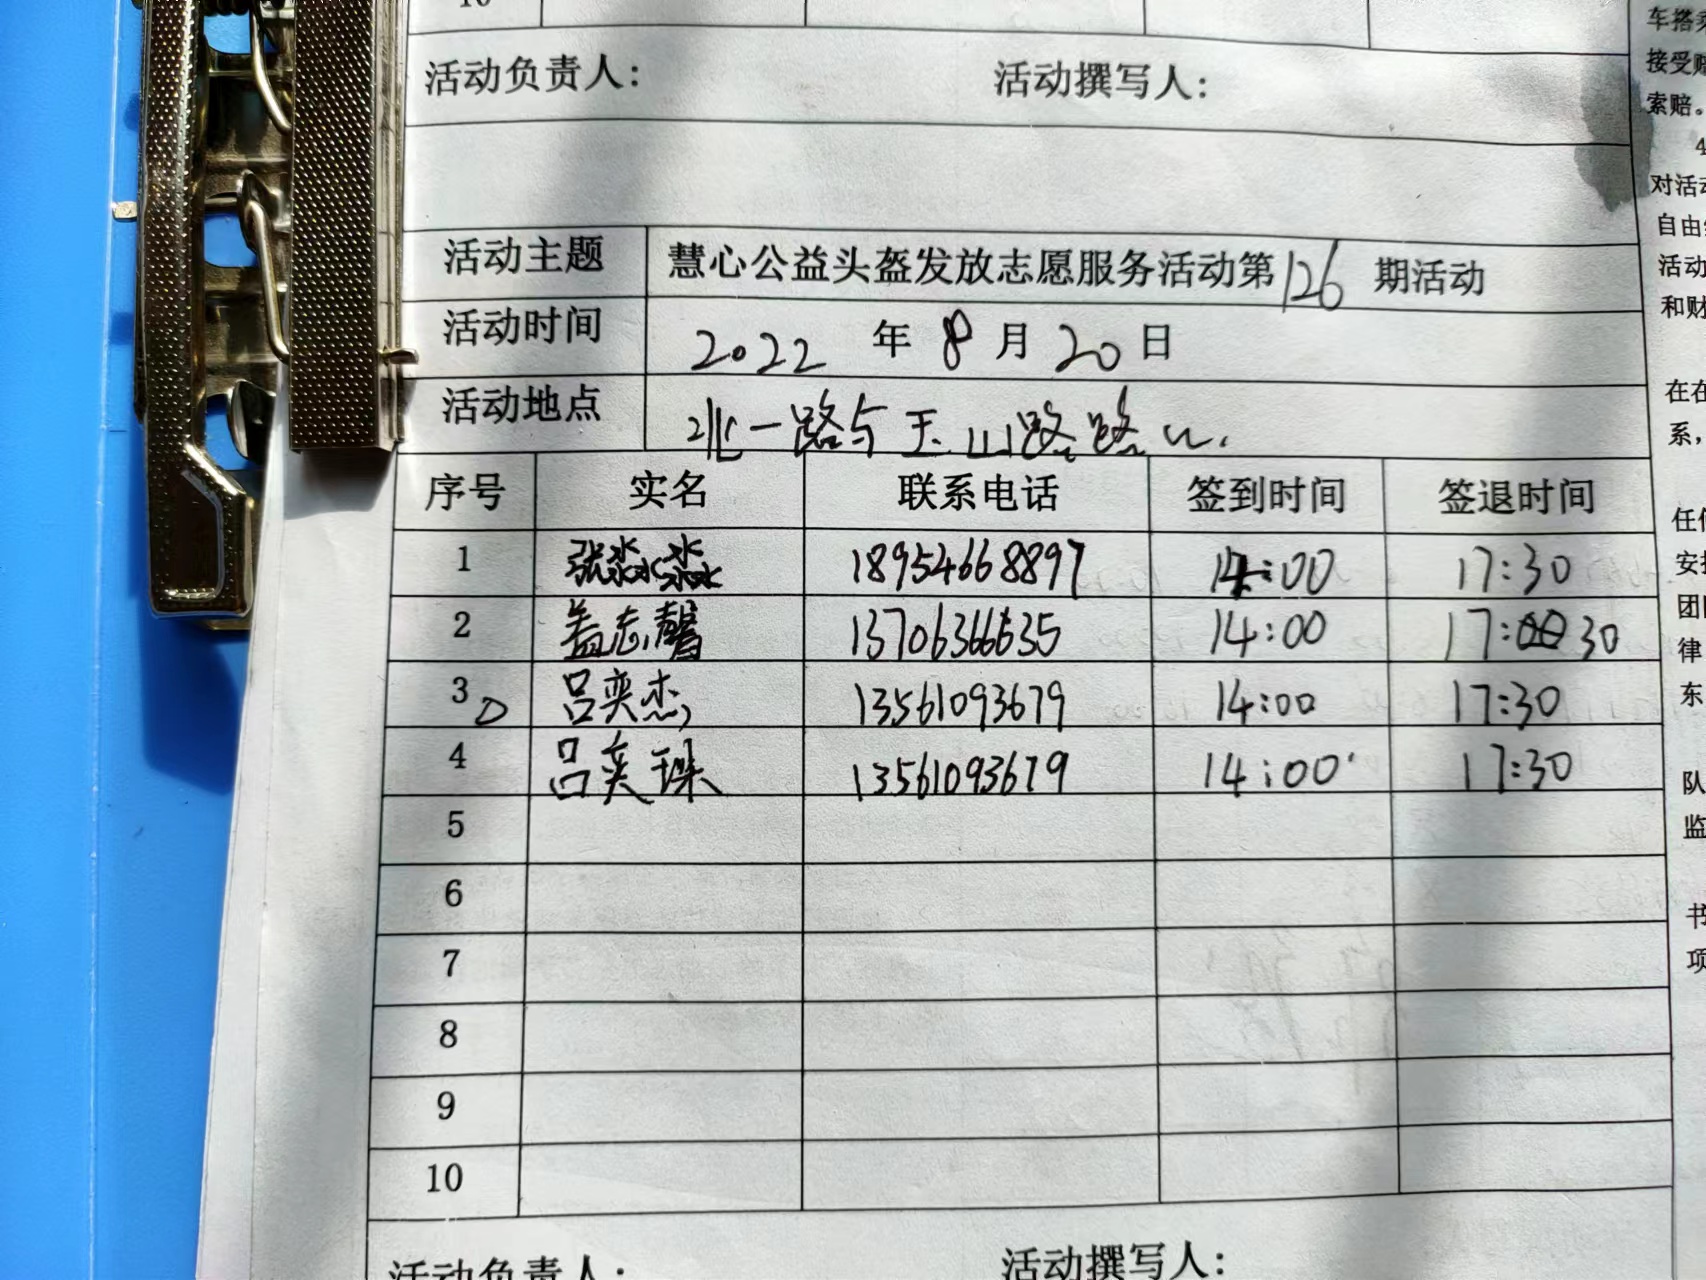 活动负责人： 活动撰写人：
活动主题 慧心公益头盔发放志愿服务活动第126期活动
活动时间 2022年8月20日
活动地点 北一路与玉山路路口.
序号 实名 联系电话 签到时间 签退时间
1 张淼淼 18954668897 14:00 17:30
2 盖志馨 13706366635 14:00 17:30
3 吕奕杰 13561093679 14:00 17:30
4 吕奕珠 13561093679 14:00 17:30
5
6
7
8
9
10
活动负责人： 活动撰写人：
接受赔
索赔。
4
对活动
自由
活动
和财
在在
系，
任何
安排
团队
律
东
队
监
书
项